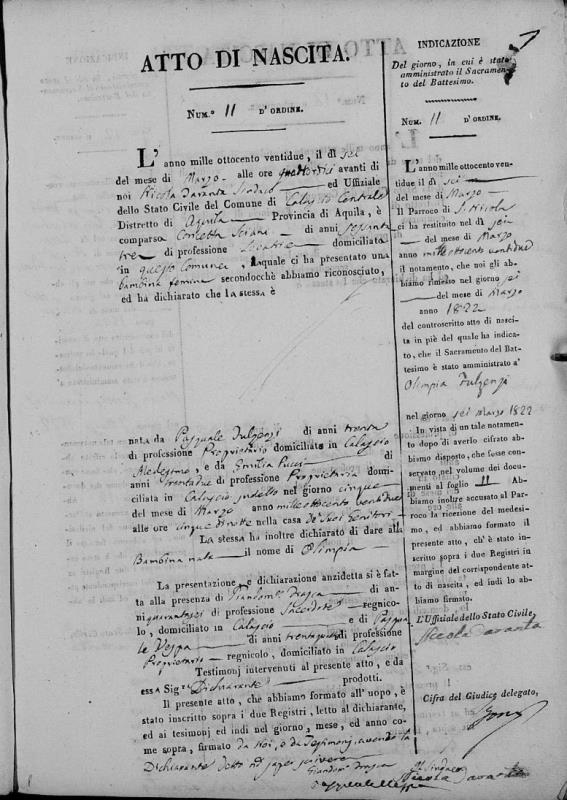 ATTO DI NASCITA.
NUM.° 11 D' ORDINE.
L' anno mille ottocento ventidue, il dì sei
del mese di Marzo alle ore quattordici avanti di
noi Nicola Taranta Sindaco ed Uffiziale
dello Stato Civile del Comune di Calascio Centrale
Distretto di Aquila Provincia di Aquila, è
comparsa Concetta di anni sessanta
tre di professione domiciliata
in questo Comune, laquale ci ha presentato una
bambina femina secondochè abbiamo riconosciuto,
ed ha dichiarato che la stessa è
nata da Pasquale Fulgenzi di anni trenta
di professione Proprietario domiciliato in Calascio
Medesimo, e da Emilia Pucci di
anni trentadue di professione Proprietaria domi-
ciliata in Calascio sudetto nel giorno cinque
del mese di Marzo anno mille ottocento ventidue
alle ore cinque di notte nella casa de' suoi Genitori
La stessa ha inoltre dichiarato di dare alla
Bambina nata il nome di Olimpia
La presentazione, e dichiarazione anzidetta si è fat-
ta alla presenza di Giandom.co di an-
ni quarantasei di professione Sacerdote regnico-
lo, domiciliato in Calascio e di Pasqua
le Vespa di anni di professione
Proprietario regnicolo, domiciliato in Calascio
Testimonj intervenuti al presente atto, e da
essa Sig.ra Dichiarante prodotti.
Il presente atto, che abbiamo formato all' uopo, è
stato inscritto sopra i due Registri, letto al dichiarante,
ed ai testimonj ed indi nel giorno, mese, ed anno co-
me sopra, firmato da Noi, e da Testimonj, avendo la
Dichiarante detto non saper scrivere
Giandom.co
Pasquale Vespa
Il Sindaco
Nicola Taranta
INDICAZIONE
Del giorno, in cui è stato
amministrato il Sacramen-
to del Battesimo.
NUM. 11 D' ORDINE.
L' anno mille ottocento ven-
tidue il dì sei
del mese di Marzo
Il Parroco di S. Nicola
ci ha restituito nel dì sei
del mese di Marzo
anno mille ottocento ventidue
il notamento, che noi gli ab-
biamo rimesso nel giorno sei
del mese di Marzo
anno 1822
del controscritto atto di nasci-
ta in piè del quale ha indica-
to, che il Sacramento del Bat-
tesimo è stato amministrato a'
Olimpia Fulgenzi
nel giorno sei Marzo 1822
In vista di un tale notamento
dopo di averlo cifrato abbiamo
disposto, che fosse con-
servato nel volume dei docu-
menti al foglio 11 Ab-
biamo inoltre accusato al Par-
roco la ricezione del medesi-
mo, ed abbiamo formato il
presente atto, ch' è stato in-
scritto sopra i due Registri in
margine del corrispondente at-
to di nascita, ed indi lo ab-
biamo firmato.
L'Uffiziale dello Stato Civile,
Nicola Taranta
Cifra del Giudice delegato,